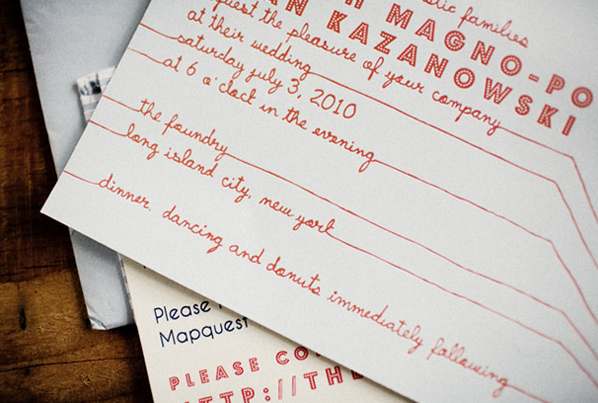 families
MAGNO-PO
AN KAZANOWSKI
quest the pleasure of your company
at their wedding
saturday july 3, 2010
at 6 o'clock in the evening
the foundry
long island city, new york
dinner, dancing and donuts immediately following
Please
Mapquest
PLEASE CO
HTTP://THE